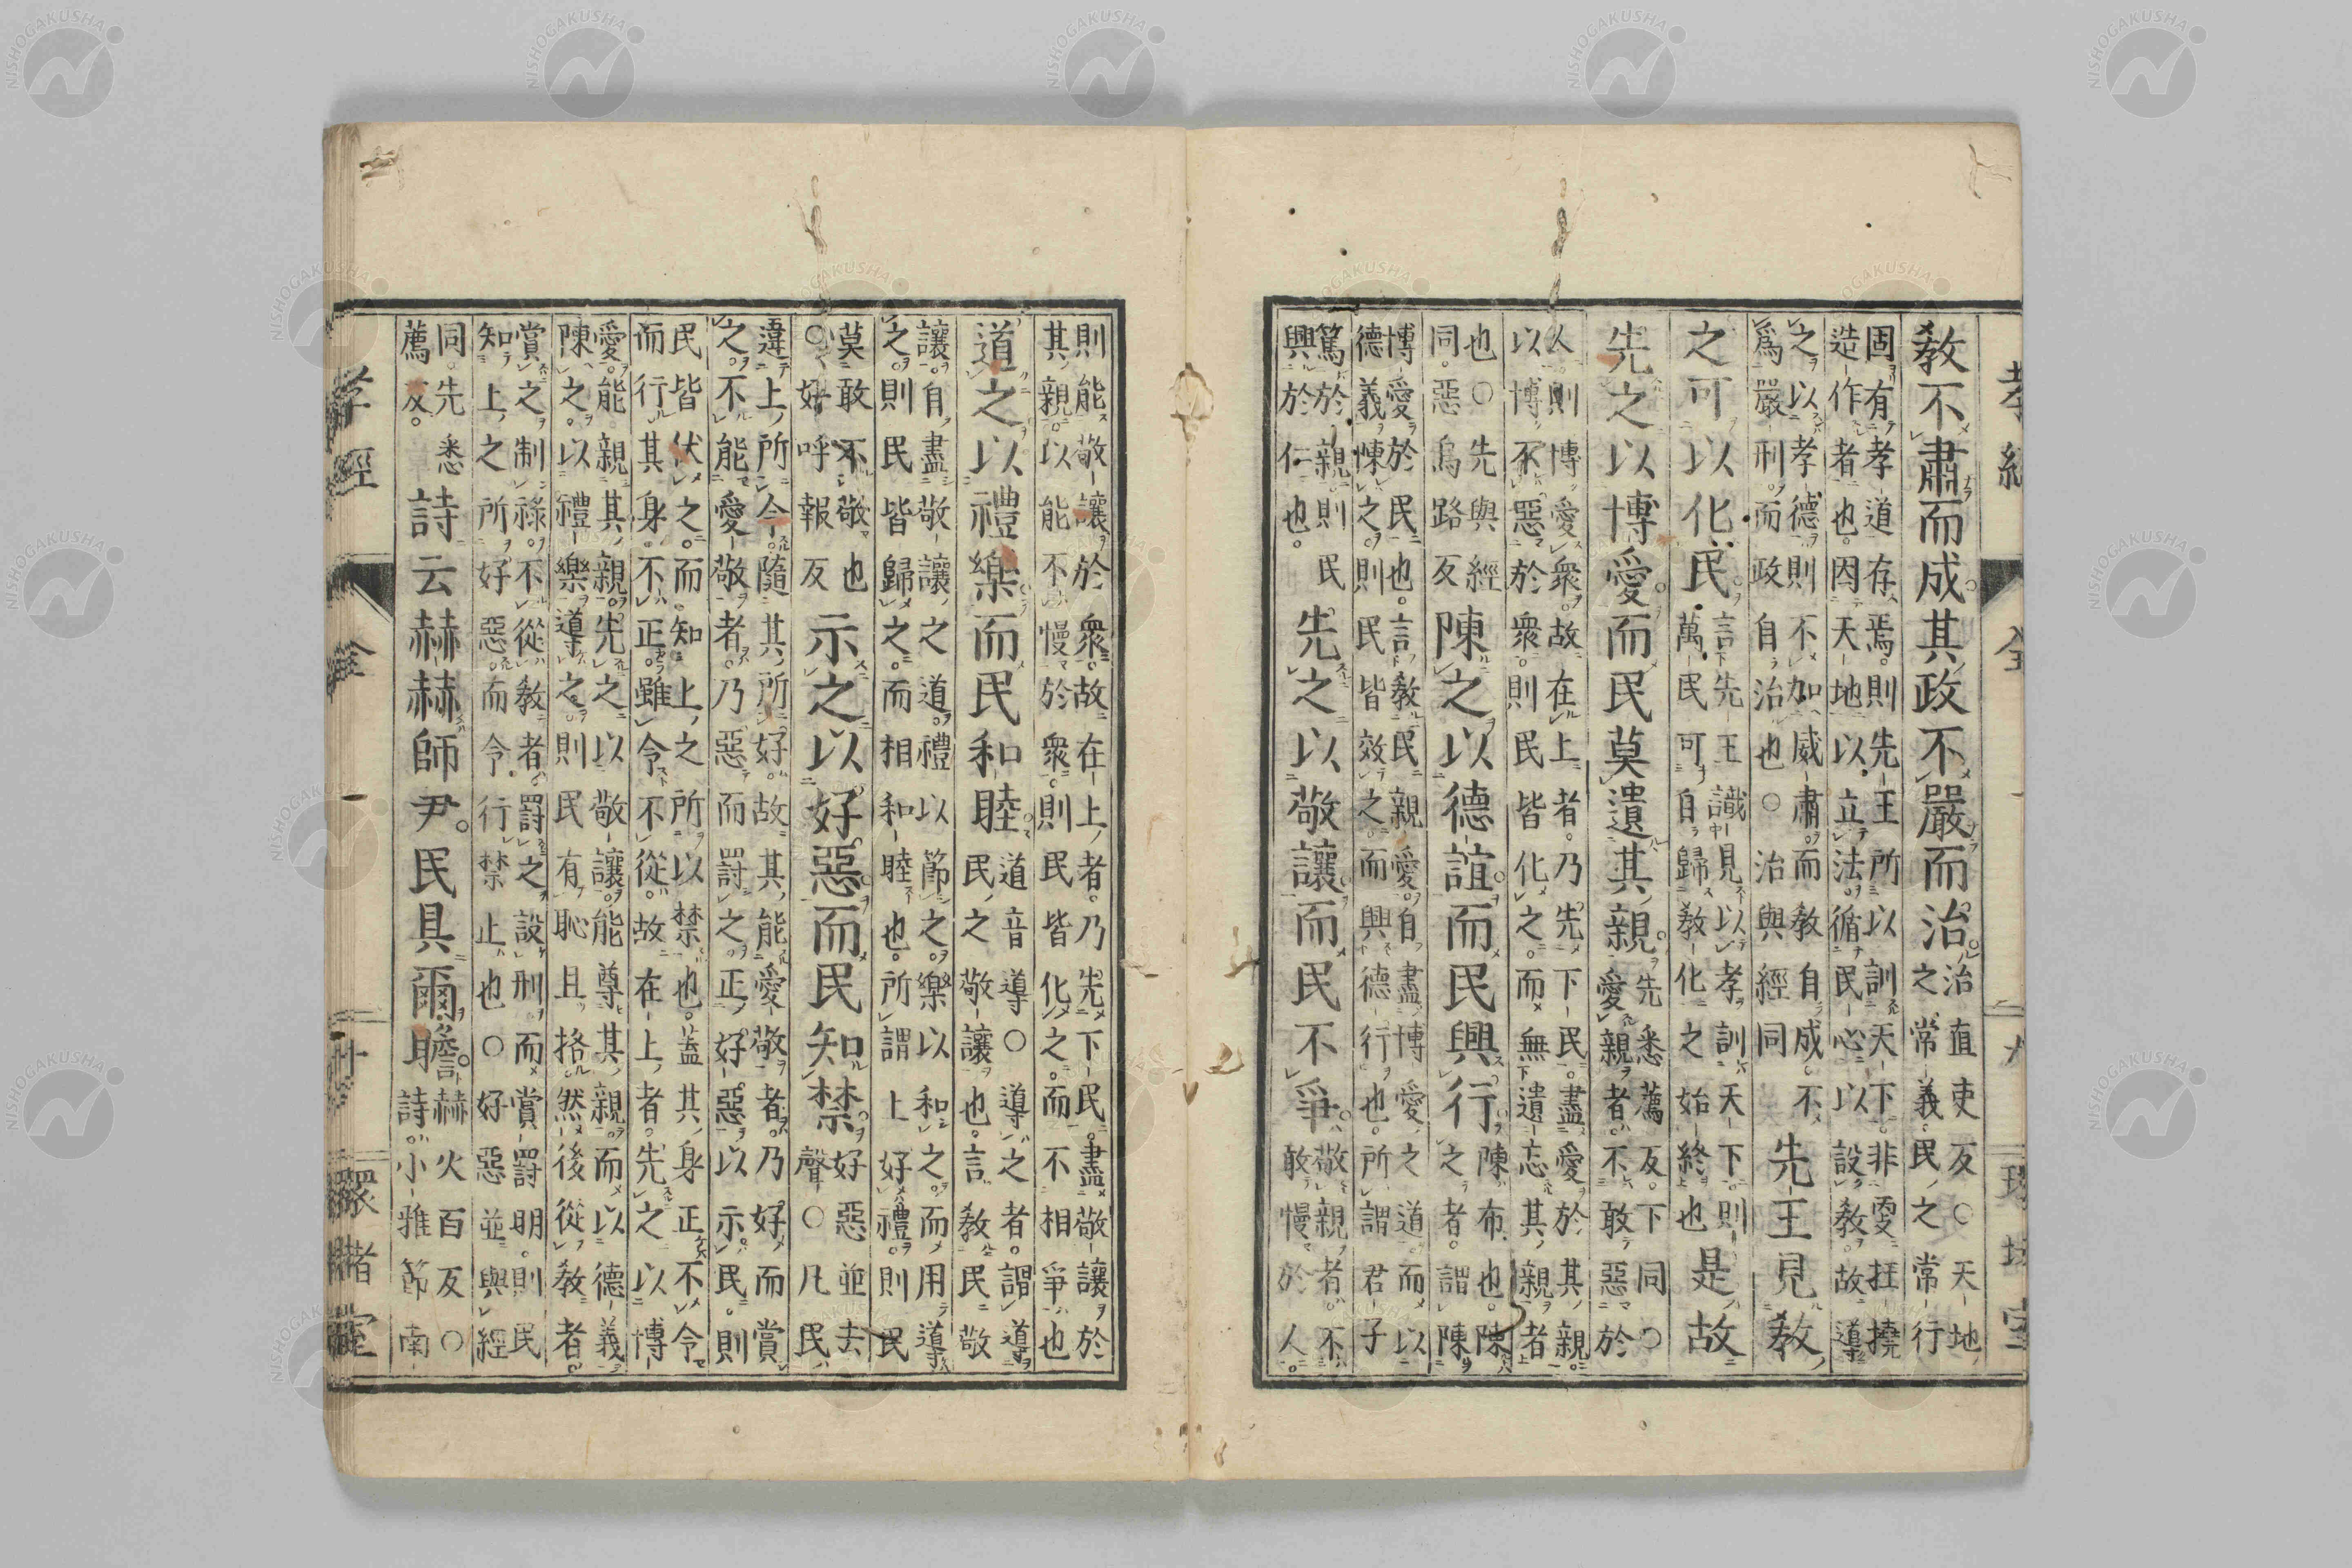 孝經 全 九
敎不肅而成其政不嚴而治治直吏反○天地之常義民之常行
固有孝道存焉則先王所以訓天下非雯抂撓
造作者也因天地以立法循民心以設敎故導
之以孝德則不加威肅而敎自成不
爲嚴刑而政自治也○治與經同先王見敎
之可以化民言先王識見以孝訓天下則萬民可自歸敎化之始終也是故
先之以博愛而民莫遺其親先悉薦反下同○愛親者不敢惡於
人則博愛衆故在上者乃先下民盡愛於其親
以博不惡於衆則民皆化之而無遺忘其親者
也○先與經同惡烏路反陳之以德誼而民興行陳布也陳之者謂陳
博愛於民也言敎民親愛自盡博愛之道而以
德義悚之則民皆效之而興德行也所謂君子
篤於親則民興於仁也先之以敬讓而民不爭敬親者不敢慢於人
則能敬讓於衆故在上者乃先下民盡敬讓於
其親以能不慢於衆則民皆化之而不相爭也
道之以禮樂而民和睦道音導○導之者謂導民之敬讓也言敎民敬
讓自盡敬讓之道禮以節之樂以和之而用導
之則民皆歸之而相和睦也所謂上好禮則民
莫敢不敬也○好呼報反示之以好惡而民知禁好惡並去聲○凡民
違上所令隨其所好故其能愛敬者乃好而賞
之不能愛敬者乃惡而罸之正好惡以示民則
民皆伏之而知上之所以禁也蓋其身正不令
而行其身不正雖令不從故在上者先之以博
愛能親其親先之以敬讓能尊其親而以德義
陳之以禮樂導之則民有恥且格然後從敎者
賞之制祿不從敎者罸之設刑而賞罸明則民
知上之所好惡而令行禁止也○好惡並與經
同先悉薦反詩云赫赫師尹民具爾瞻赫火百反○詩小雅節南
孝經 全 十 環堵室